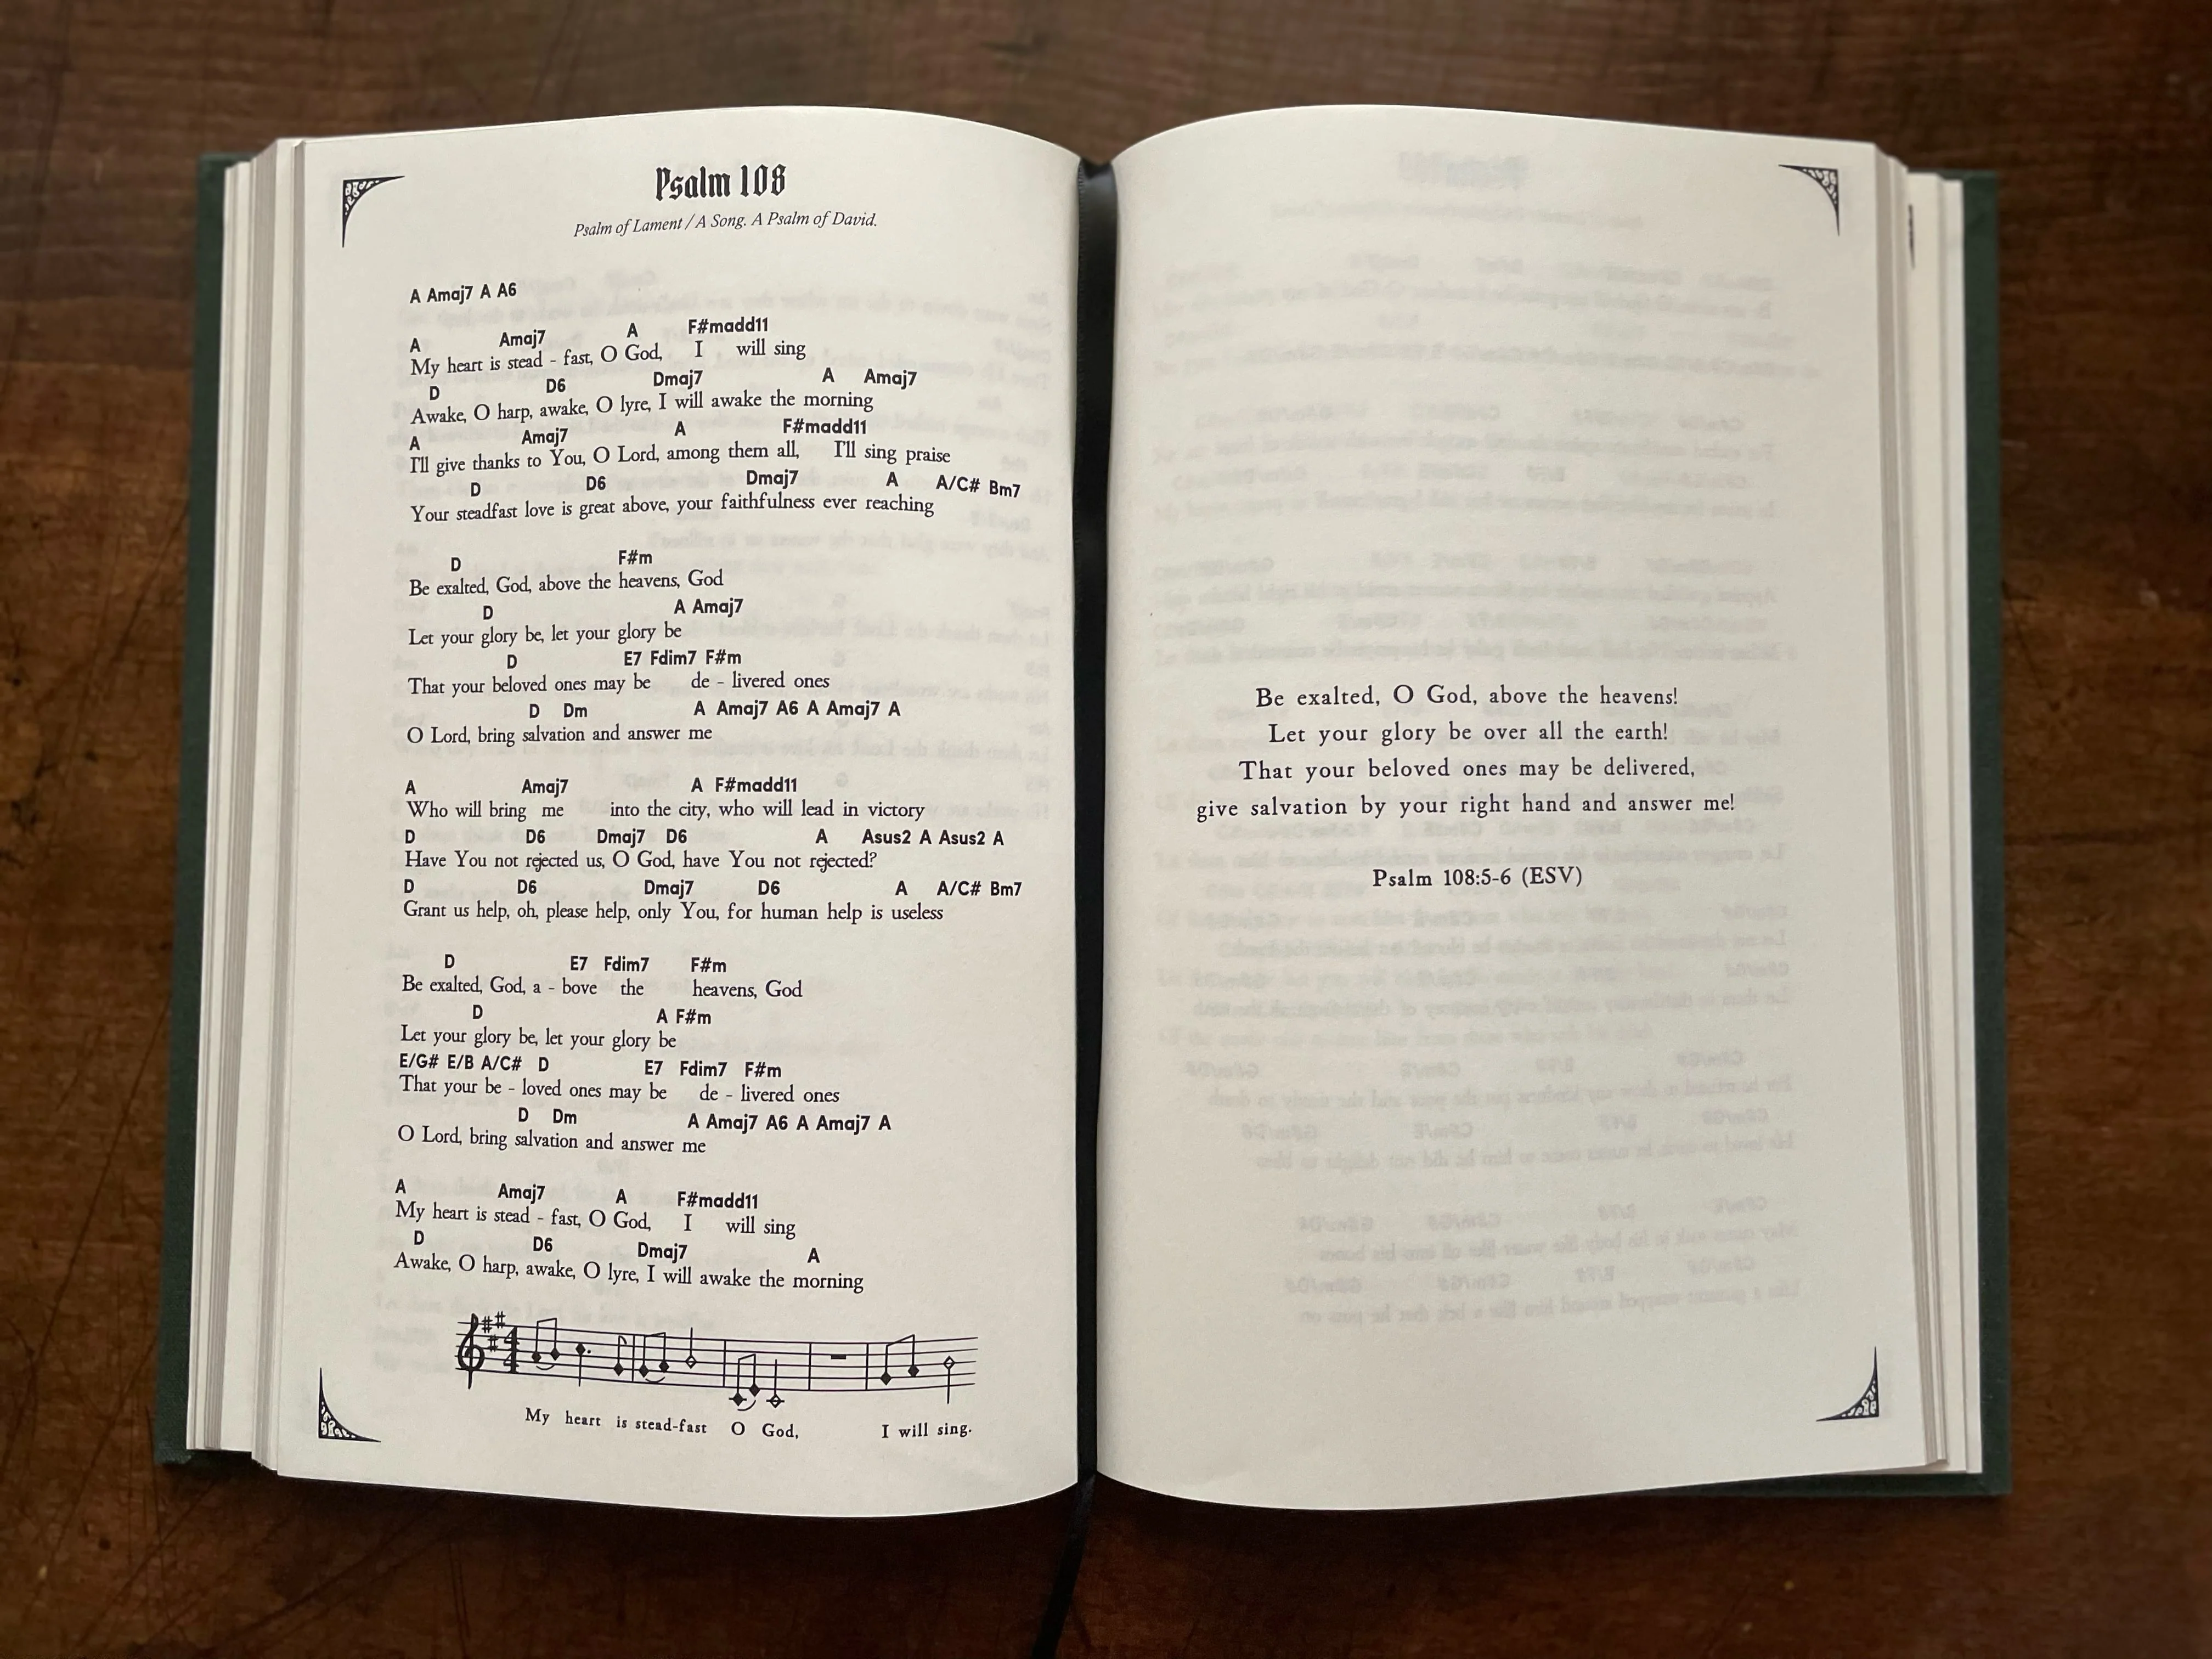 Psalm 108
Psalm of Lament / A Song. A Psalm of David.
A Amaj7 A A6
A Amaj7 A F#madd11
My heart is stead - fast, O God, I will sing
D D6 Dmaj7 A Amaj7
Awake, O harp, awake, O lyre, I will awake the morning
A Amaj7 A F#madd11
I'll give thanks to You, O Lord, among them all, I'll sing praise
D D6 Dmaj7 A A/C# Bm7
Your steadfast love is great above, your faithfulness ever reaching
D F#m
Be exalted, God, above the heavens, God
D A Amaj7
Let your glory be, let your glory be
D E7 Fdim7 F#m
That your beloved ones may be de - livered ones
D Dm A Amaj7 A6 A Amaj7 A
O Lord, bring salvation and answer me
A Amaj7 A F#madd11
Who will bring me into the city, who will lead in victory
D D6 Dmaj7 D6 A Asus2 A Asus2 A
Have You not rejected us, O God, have You not rejected?
D D6 Dmaj7 D6 A A/C# Bm7
Grant us help, oh, please help, only You, for human help is useless
D E7 Fdim7 F#m
Be exalted, God, a - bove the heavens, God
D A F#m
Let your glory be, let your glory be
E/G# E/B A/C# D E7 Fdim7 F#m
That your be - loved ones may be de - livered ones
D Dm A Amaj7 A6 A Amaj7 A
O Lord, bring salvation and answer me
A Amaj7 A F#madd11
My heart is stead - fast, O God, I will sing
D D6 Dmaj7 A
Awake, O harp, awake, O lyre, I will awake the morning
4
4
My heart is stead-fast O God, I will sing.
Be exalted, O God, above the heavens!
Let your glory be over all the earth!
That your beloved ones may be delivered,
give salvation by your right hand and answer me!
Psalm 108:5-6 (ESV)